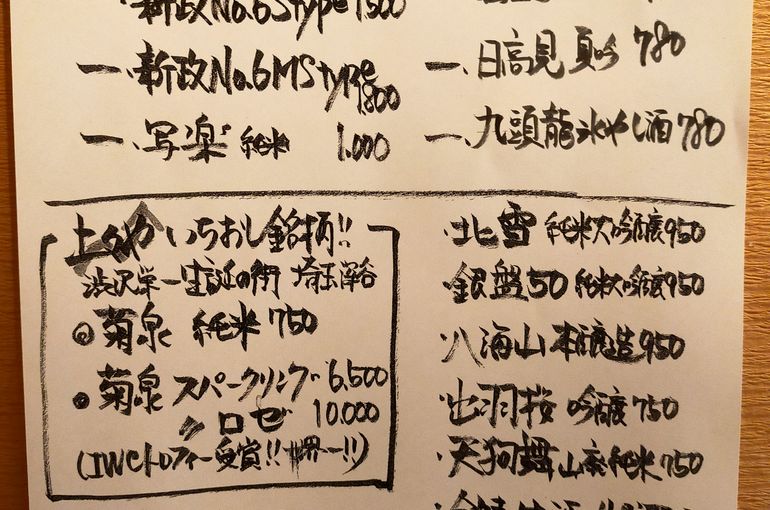 新政No.6 Stype 1500
一、新政No.6 MStype 1,800
一、写楽 純米 1,000
一、日高見 夏吟 780
一、九頭龍 氷やし酒 780
上々や いちおし銘柄!!
渋沢栄一生誕の街 埼玉深谷
◎菊泉 純米 750
◎菊泉 スパークリング 6,500
〃 ロゼ 10,000
(IWCトロフィー受賞!!世界一!!)
・北雪 純米大吟醸 950
・銀盤50 純米大吟醸 950
・八海山 本醸造 950
・出羽桜 吟醸 750
・天狗舞 山廃純米 750